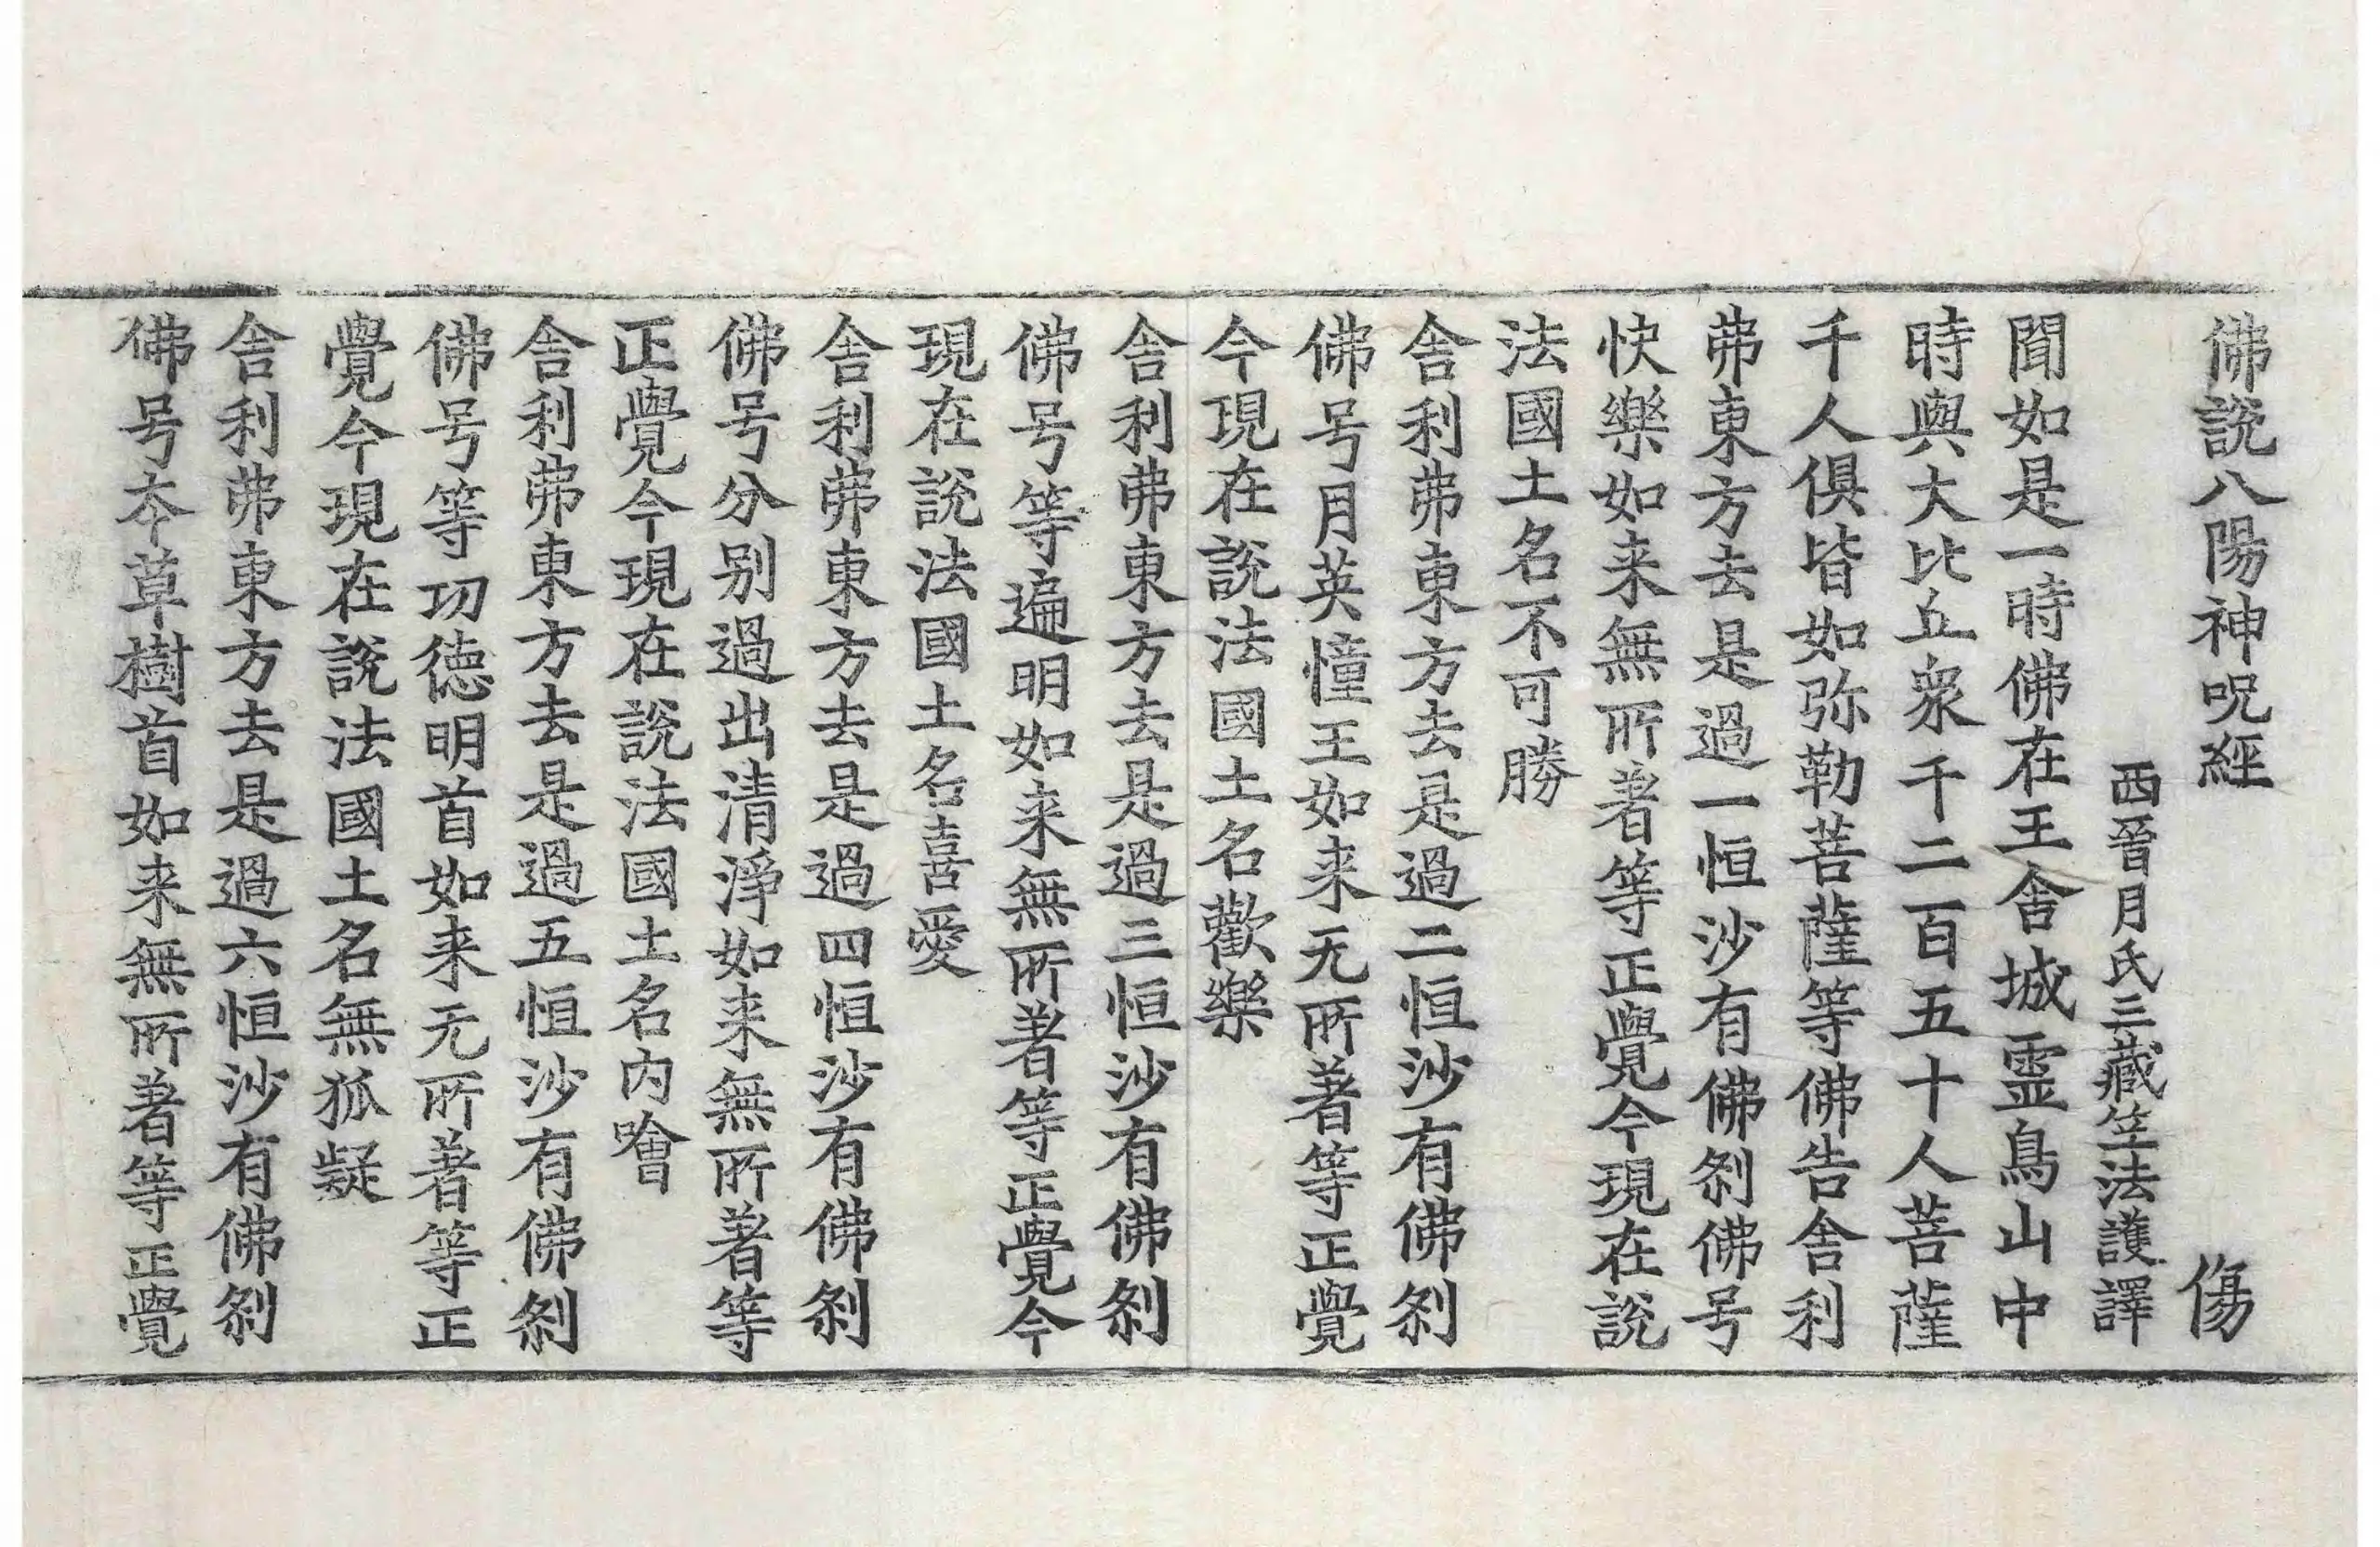 佛說八陽神呪經　傷
西晉月氏三藏竺法護譯
聞如是一時佛在王舍城靈鳥山中
時與大比丘衆千二百五十人菩薩
千人俱皆如弥勒菩薩等佛告舍利
弗東方去是過一恒沙有佛刹佛号
快樂如来無所著等正覺今現在說
法國土名不可勝
舍利弗東方去是過二恒沙有佛刹
佛号月英憧王如来无所著等正覺
今現在說法國土名歡樂
舍利弗東方去是過三恒沙有佛刹
佛号等遍明如来無所著等正覺今
現在說法國土名喜愛
舍利弗東方去是過四恒沙有佛刹
佛号分别過出清淨如来無所著等
正覺今現在說法國土名内噲
舍利弗東方去是過五恒沙有佛刹
佛号等功德明首如来无所著等正
覺今現在說法國土名無狐疑
舍利弗東方去是過六恒沙有佛刹
佛号夲草樹首如来無所著等正覺